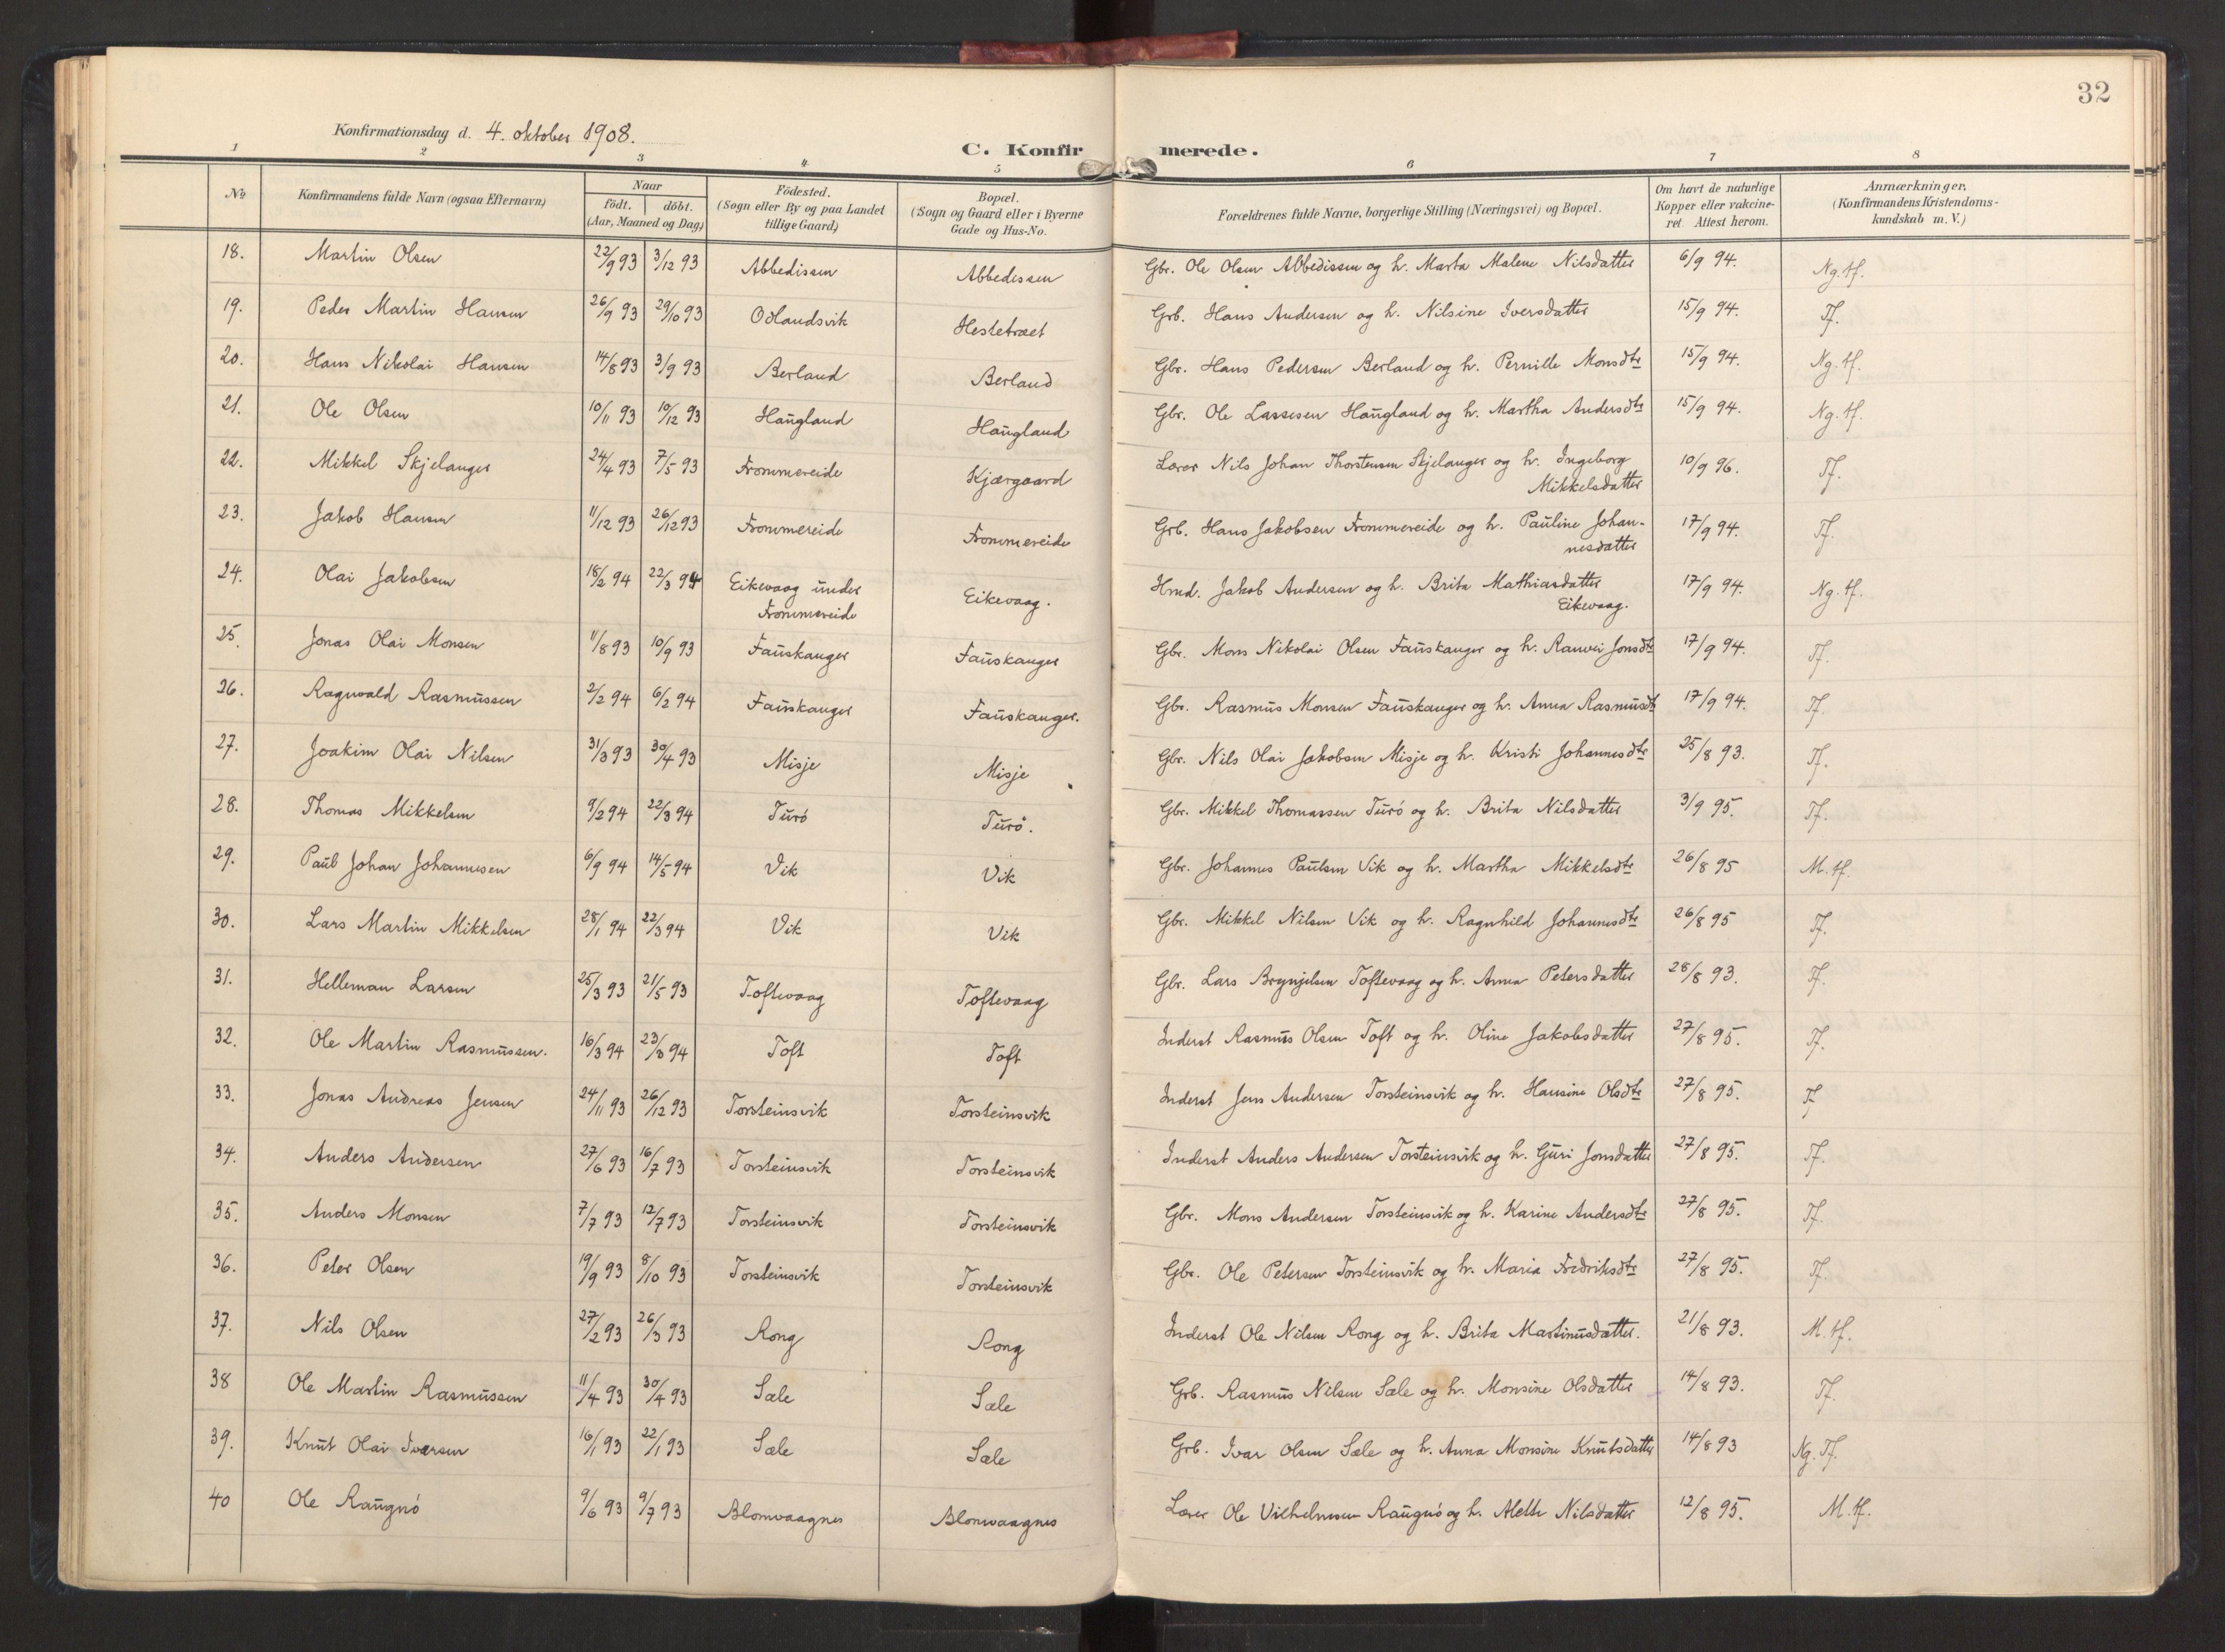 32
Konfirmationsdag d. 4. oktober 1908.
C. Konfirmerede.
1 2 3 4 5 6 7 8
No Konfirmandens fulde Navn (ogsaa Efternavn) Naar födt. döbt. (Aar, Maaned og Dag) Födested. (Sogn eller By og paa Landet tillige Gaard) Bopæl. (Sogn og Gaard eller i Byerne Gade og Hus-No. Forældrenes fulde Navne, borgerlige Stilling (Næringsvei) og Bopæl. Om havt de naturlige Kopper eller vakcineret Attest herom. Anmærkninger, (Konfirmandens Kristendomskundskab m. V.)
18. Martin Olsen 22/9 93 3/12 93 Abbedissen Abbedissen Gbr. Ole Olsen Abbedissen og h. Marta Malene Nilsdatter 6/9 94. Ng. tf.
19. Peder Martin Hansen 26/9 93 29/10 93 Odlandsvik Hestetræet Grb. Hans Andersen og h. Nilsine Iversdatter 15/9 94. Tf.
20. Hans Nikolai Hansen 14/8 93 3/9 93 Berland Berland Gbr. Hans Pedersen Berland og h. Pernille Monsdtr 15/9 94. Ng. tf.
21. Ole Olsen 10/11 93 10/12 93 Haugland Haugland Gbr. Ole Lassesen Haugland og h. Martha Andersdtr 15/9 94. Ng. tf.
22. Mikkel Skjelanger 24/4 93 7/5 93 Frommereide Kjærgaard Lærer Nils Johan Thorstensen Skjelanger og h. Ingeborg 10/9 96. Tf.
Mikkelsdatter
23. Jakob Hansen 11/12 93 26/12 93 Frommereide Frommereide Grb. Hans Jakobsen Frommereide og h. Pauline Johan- 17/9 94. Tf.
nesdatter
24. Olai Jakobsen 18/2 94 22/3 94 Eikevaag under Eikevaag. Hmd. Jakob Andersen og h. Brita Mathiasdatter 17/9 94. Ng. tf.
Frommereide Eikevaag.
25. Jonas Olai Monsen 11/8 93 10/9 93 Fauskanger Fauskanger Gbr. Mons Nikolai Olsen Fauskanger og h. Ranvei Jonsdtr 17/9 94. Tf.
26. Ragnvald Rasmussen 2/2 94 6/2 94 Fauskanger Fauskanger. Gbr. Rasmus Monsen Fauskanger og h. Anna Rasmusdt 17/9 94. Tf.
27. Joakim Olai Nilsen 31/3 93 30/4 93 Misje Misje Gbr. Nils Olai Jakobsen Misje og h. Kristi Johannesdtr 25/8 93. Tf.
28. Thomas Mikkelsen 9/2 94 22/3 94 Turö Turö. Gbr. Mikkel Thomassen Turö og h. Brita Nilsdatter 3/9 95. Tf.
29. Paul Johan Johannesen 6/9 94 14/5 94 Vik Vik Gbr. Johannes Paulsen Vik og h. Martha Mikkelsdtr 26/8 95 M. tf.
30. Lars Martin Mikkelsen 28/1 94 22/3 94 Vik Vik Gbr. Mikkel Nilsen Vik og h. Ragnhild Johannesdtr 26/8 95 Tf.
31. Helleman Larsen 25/3 93 21/5 93 Toftevaag Toftevaag Gbr. Lars Brynjelsen Toftevaag og h. Anna Petersdatter 28/8 93. Tf.
32. Ole Martin Rasmussen. 16/3 94 23/3 94 Toft Toft Inderst Rasmus Olsen Toft og h. Oline Jakobsdatter 27/8 95. Tf.
33. Jonas Andreas Jensen 24/11 93 26/12 93 Torsteinsvik Torsteinsvik Inderst Jens Andersen Torsteinsvik og h. Hansine Olsdtr 27/8 95. Tf
34. Anders Andersen 27/6 93 16/7 93 Torsteinsvik Torsteinsvik Inderst Anders Andersen Torsteinsvik og h. Guri Jonsdatter 27/8 95. Tf.
35. Anders Monsen 7/7 93 12/7 93 Torsteinsvik Torsteinsvik Gbr. Mons Andersen Torsteinsvik og h. Karine Andersdtr 27/8 95. Tf.
36. Peter Olsen 19/9 93 8/10 93 Torsteinsvik Torsteinsvik Gbr. Ole Petersen Torsteinsvik og h. Maria Fredriksdtr 27/8 95. Tf.
37. Nils Olsen 27/2 93 26/3 93 Rong Rong Inderst Ole Nilsen Rong og h. Brita Martinusdatter. 21/8 93. M. tf.
38 Ole Martin Rasmussen 11/4 93 30/4 93 Sæle Sæle Grb. Rasmus Nilsen Sæle og h. Monsine Olsdatter 14/8 93. Tf.
39. Knut Olai Iversen 16/1 93 22/1 93 Sæle Sæle Grb. Ivar Olsen Sæle og h. Anna Monsine Knutsdatter 14/8 93 Ng. Tf.
40 Ole Raugnö 9/6 93 9/7 93 Blomvaagnes Blomvaagnes Lærer Ole Vilhelmsen Raugnö og h. Alette Nilsdatter 12/8 95. M. tf.